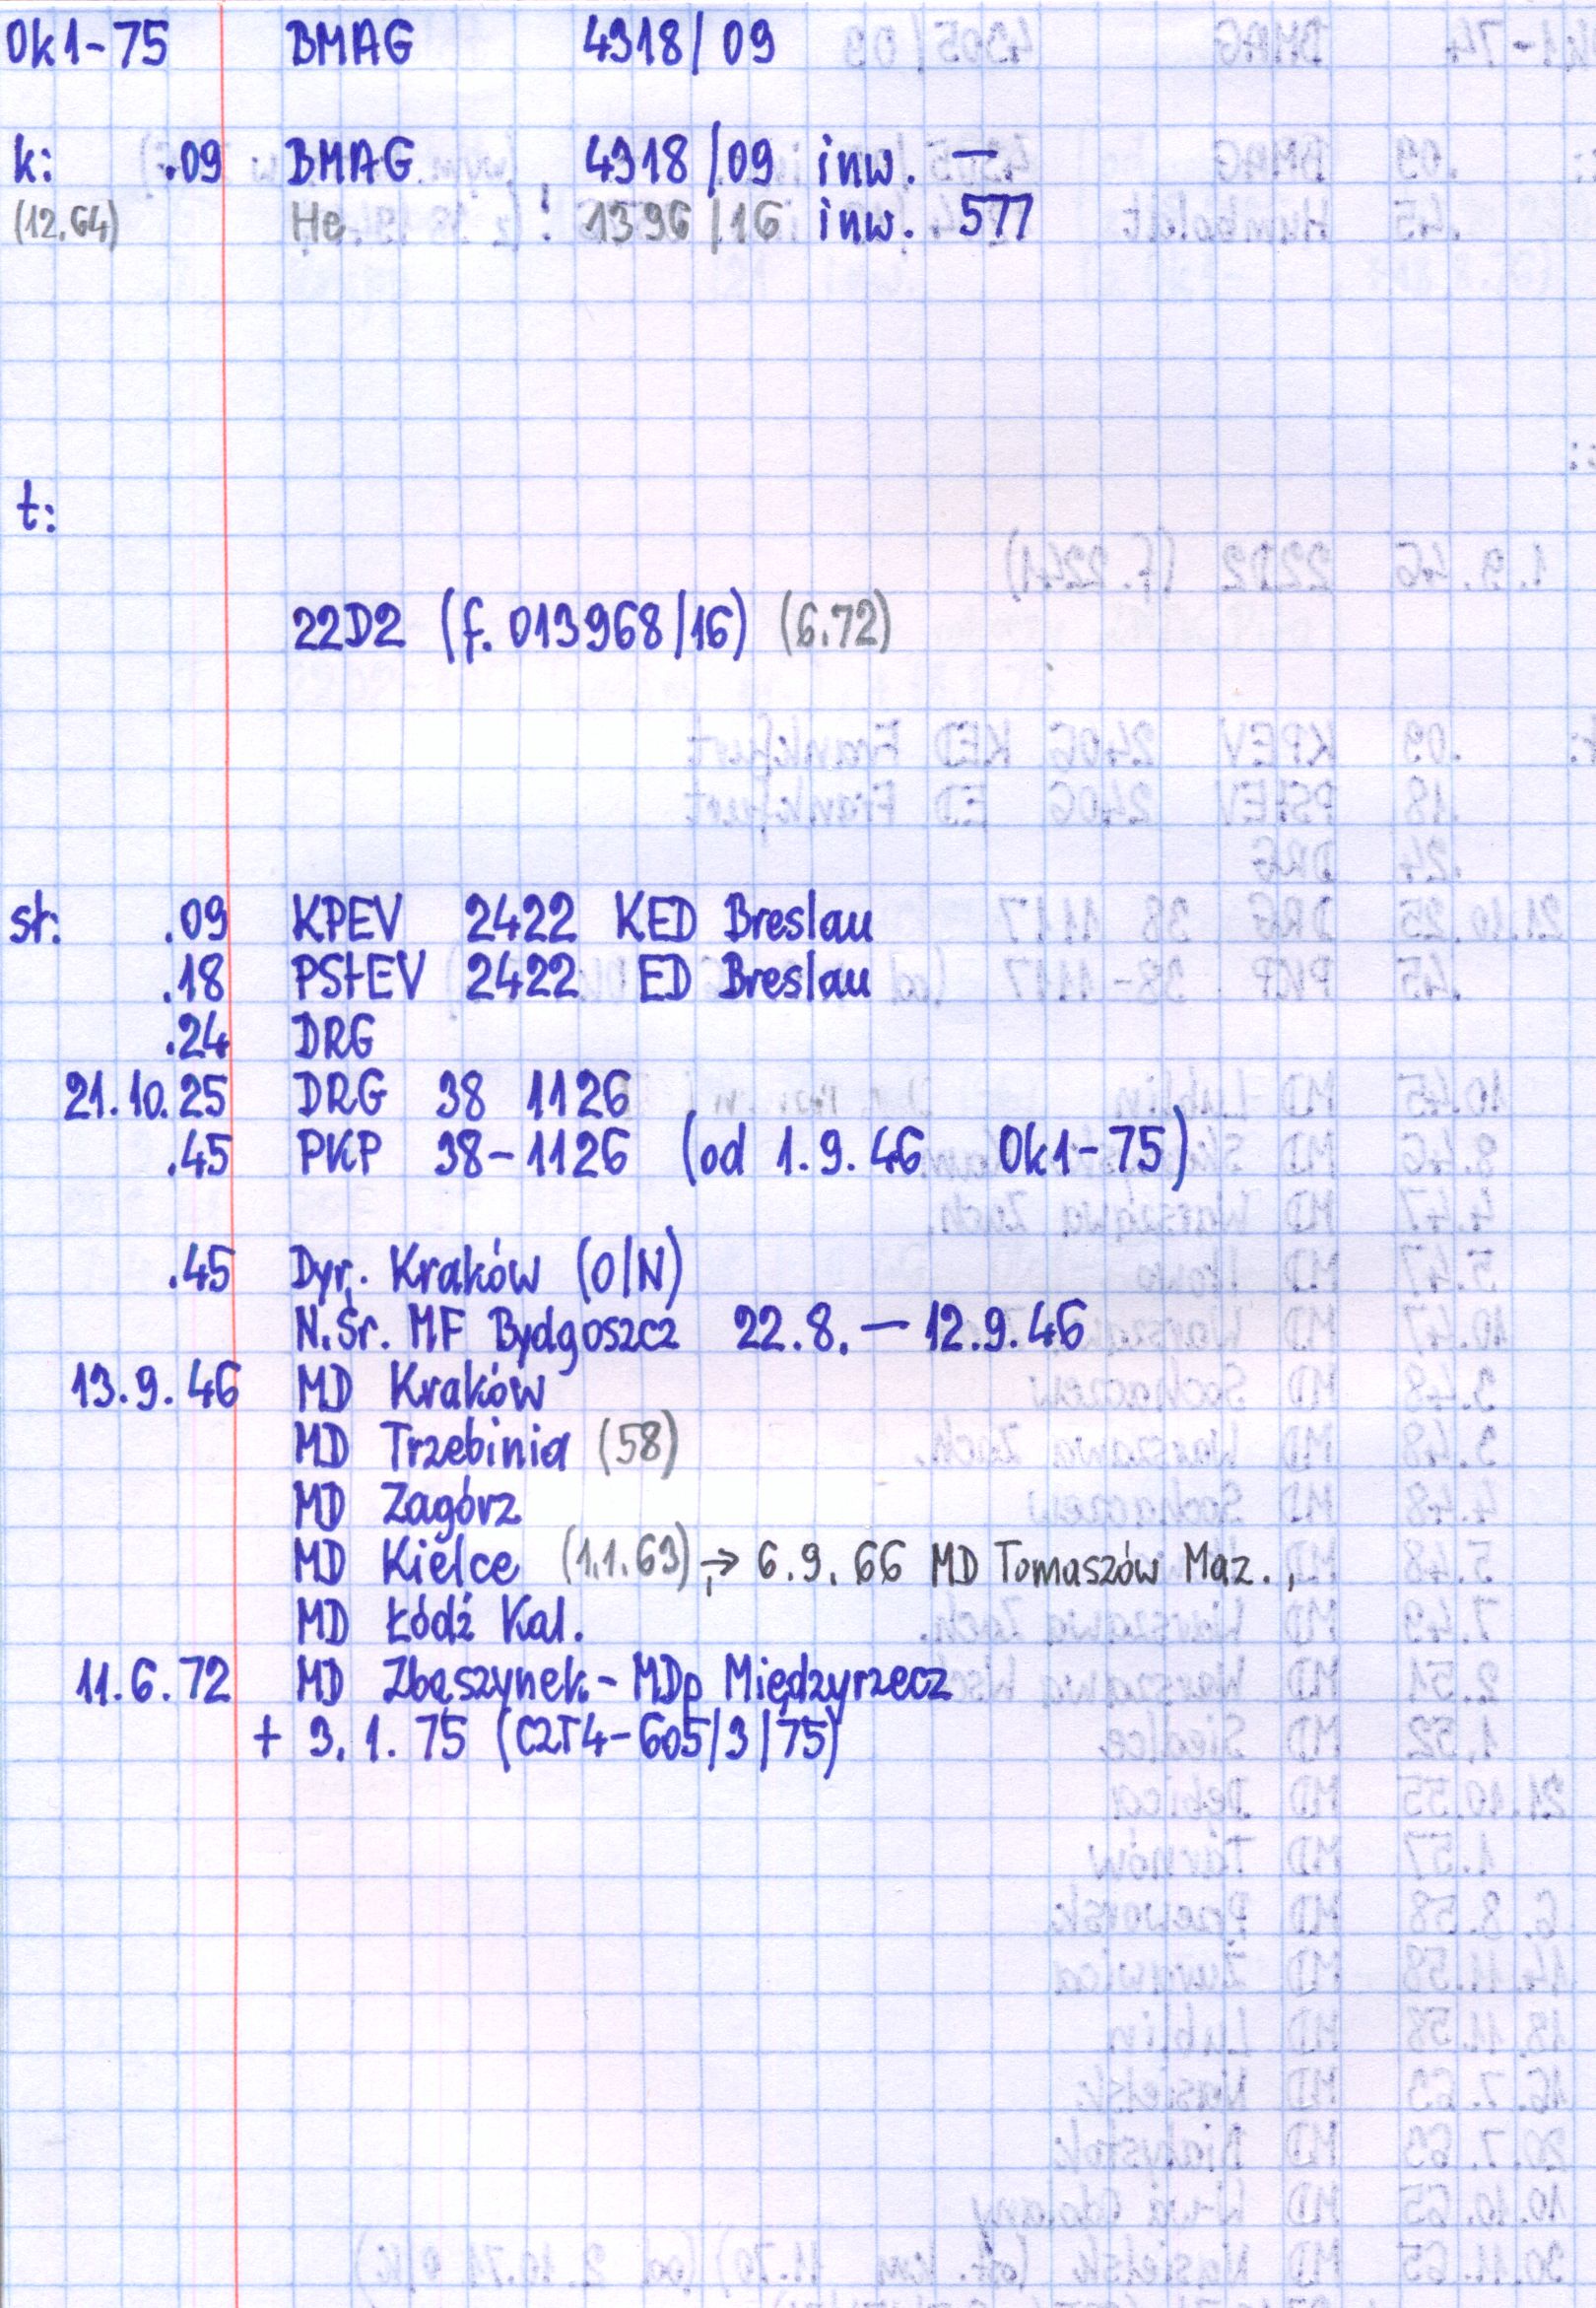 Ok1-75 BMAG 4318/09
k: .09 BMAG 4318/09 inw. —
(12.64) He 1396/16 inw. 577
t:
22D2 (f. 013968/16) (6.72)
st: .09 KPEV 2422 KED Breslau
.18 PStEV 2422 ED Breslau
.24 DRG
21.10.25 DRG 38 1126
.45 PKP 38-1126 (od 1.9.46 Ok1-75)
.45 Dyr. Kraków (O/N)
N.Śr. MF Bydgoszcz 22.8.—12.9.46
13.9.46 MD Kraków
MD Trzebinia (58)
MD Zagórz
MD Kielce (1.1.63), → 6.9.66 MD Tomaszów Maz.,
MD Łódź Kal.
11.6.72 MD Zbąszynek-MDp Międzyrzecz
+ 3.1.75 (C2T4-605/3/75)